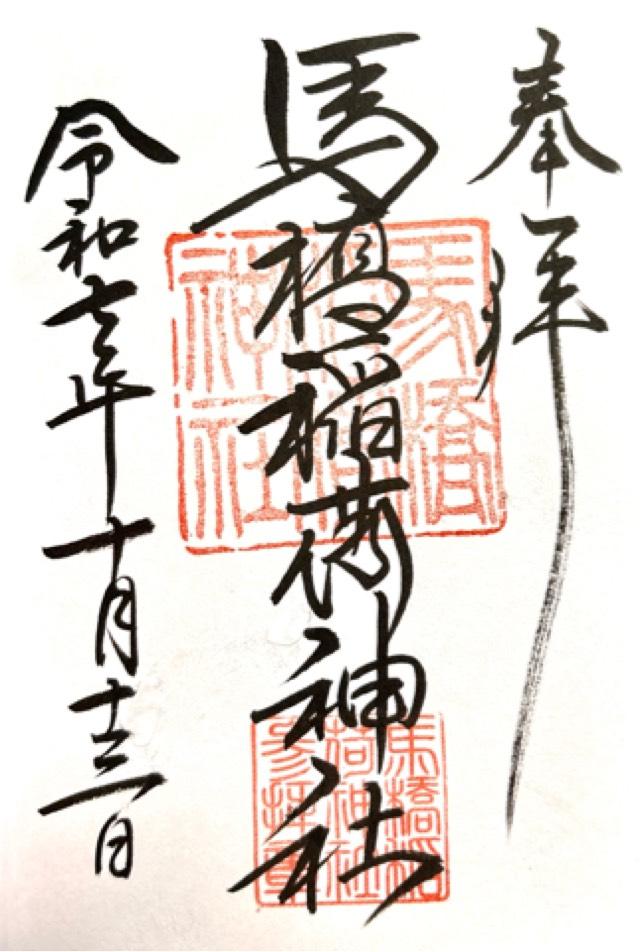 奉拝
馬橋稲荷神社
令和七年十月十三日
馬橋
稲荷
神社
馬橋稲
荷神社
参拝章